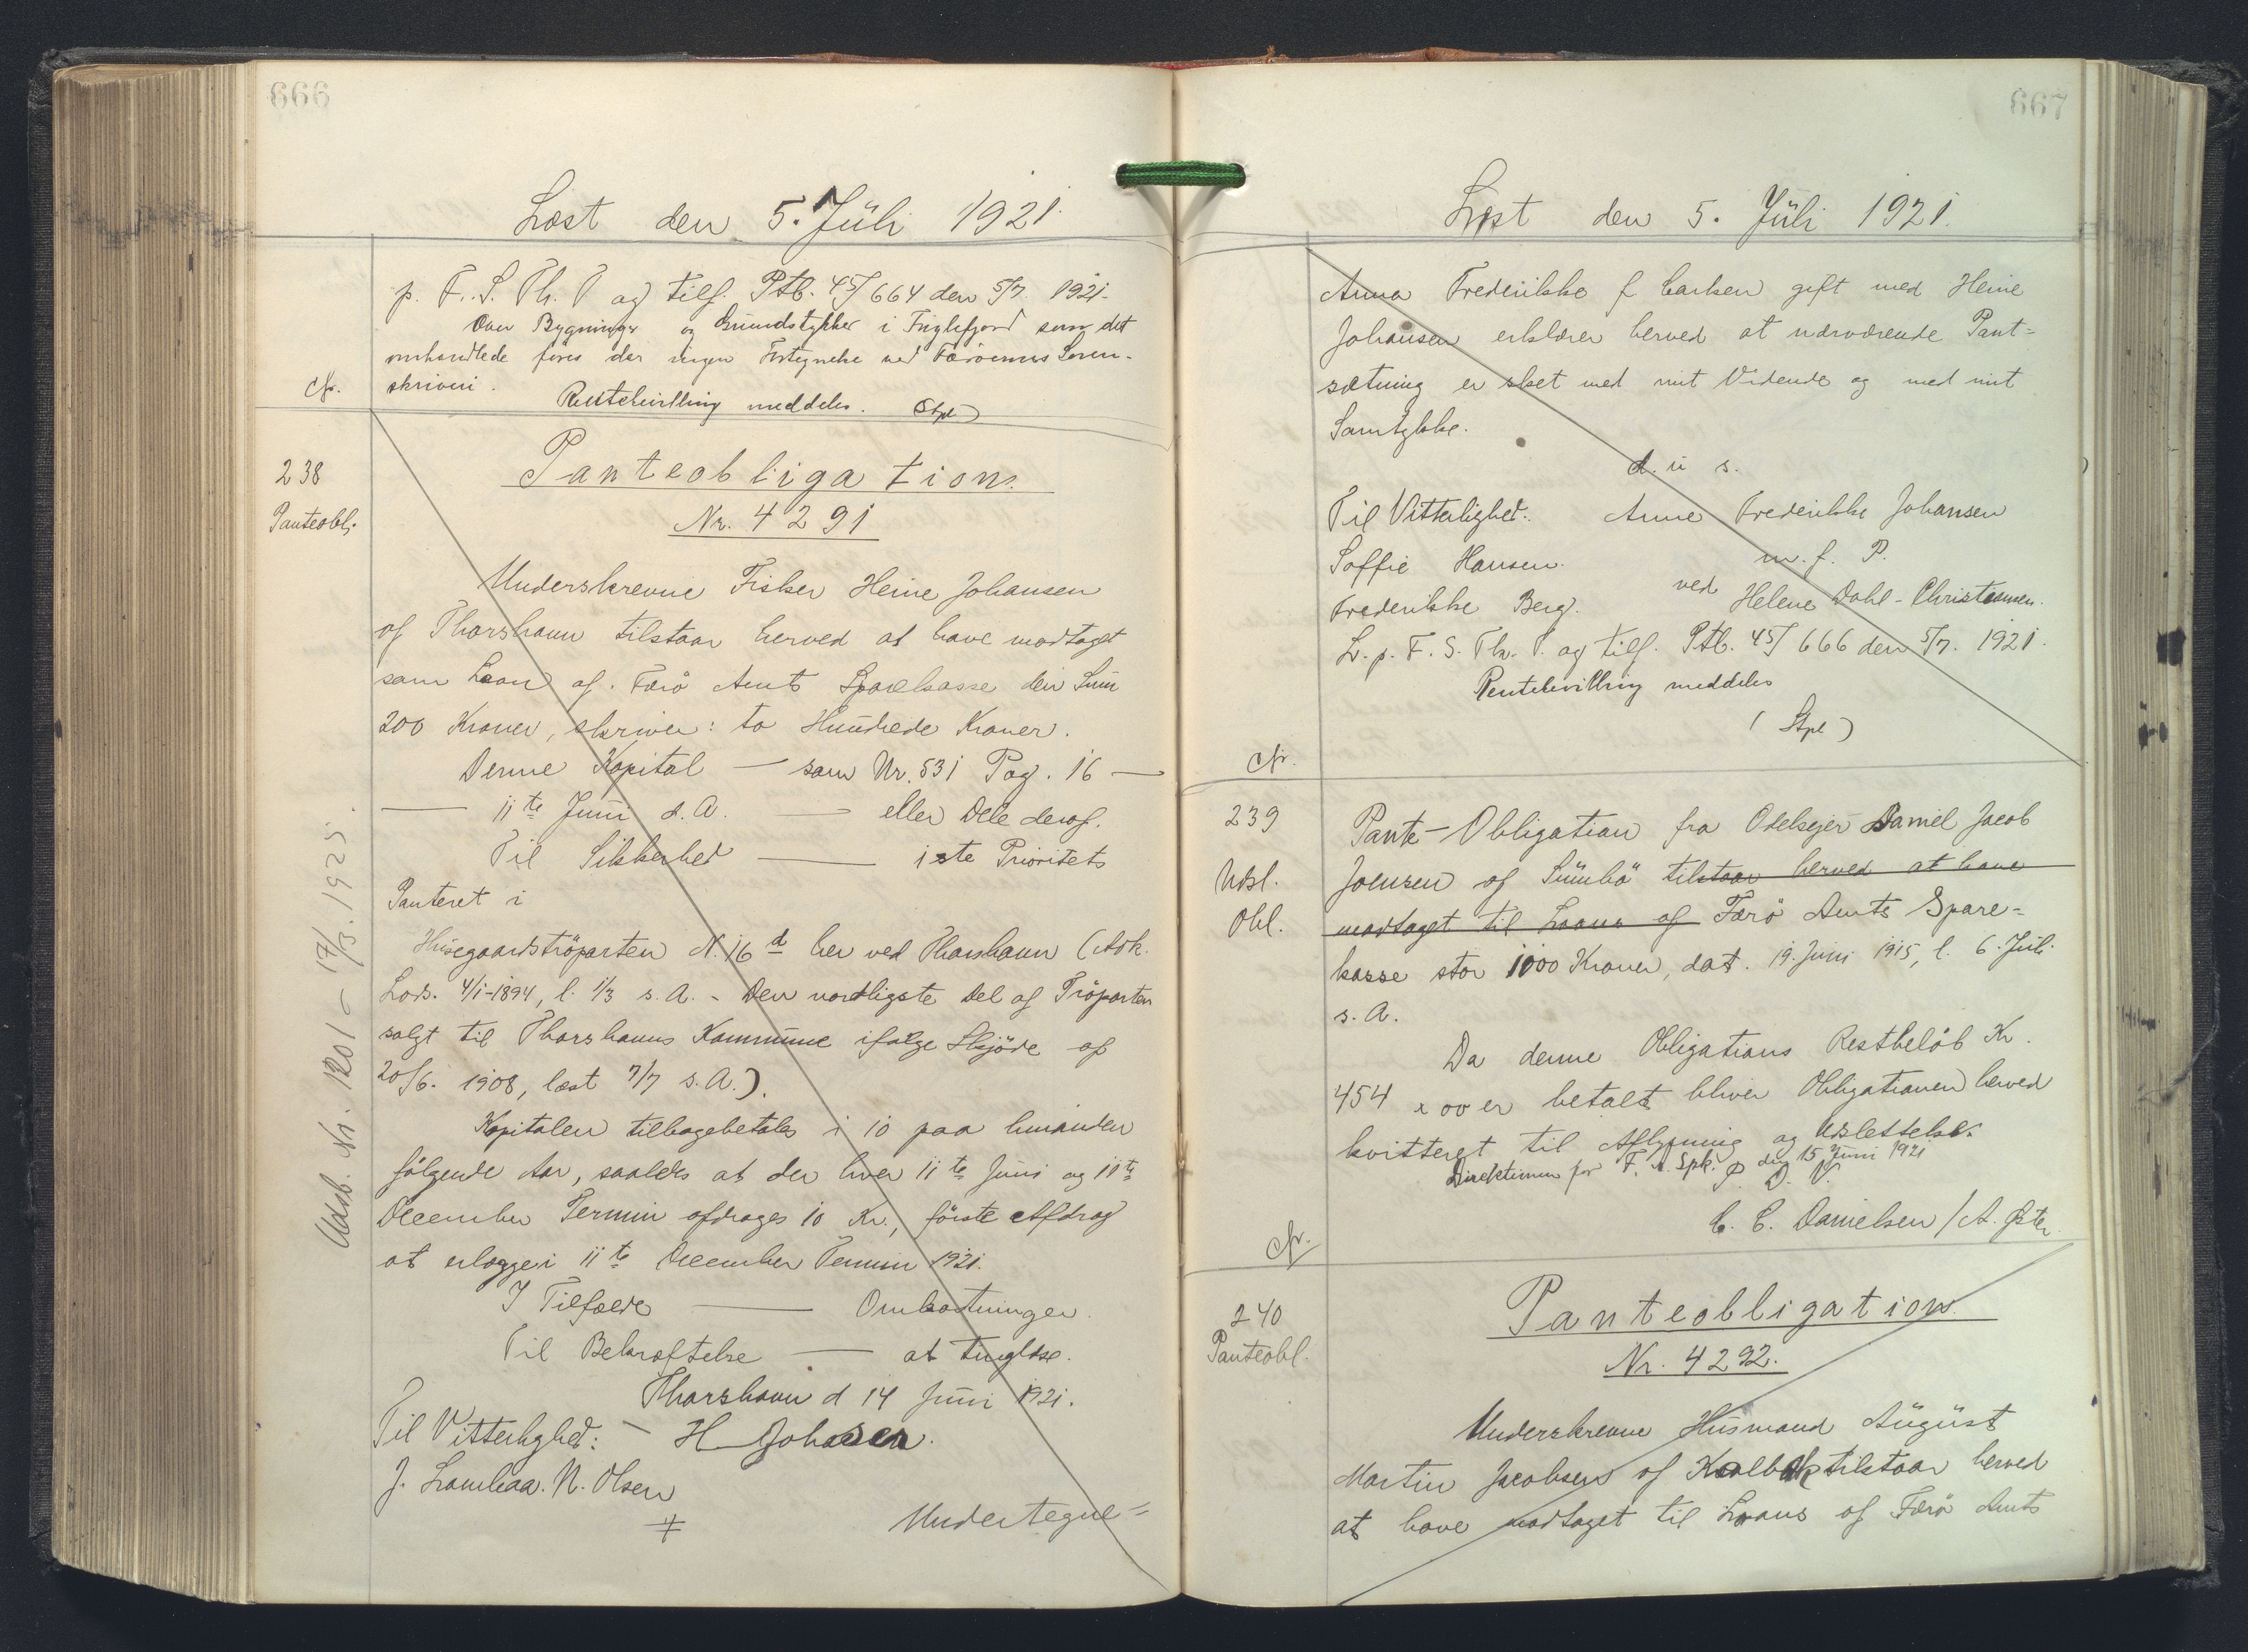 666
Læst den 5. Jüli 1921.
p. F. S. Th. P og tilf. Ptb. 45/664 den 5/7 1921.
Over Bygninger og Grundstykker i Fuglefjord som det
omhandlede föres der ingen Fortegnelse ved Færöernes Soren-
skriveri.
Rentebevilling meddeles. (Stpl)
238
Panteobl.
Panteobligation.
Nr. 4291
Underskrevne Fisker Heine Johansen
af Thorshavn tilstaar herved at have modtaget
som Laan af Færö Amts Sparekasse den Sum
200 Kroner, skriver: to Hundrede Kroner.
Denne Kapital — som Nr. 531 Pag. 16 —
— 11te Juni d. A. — eller Dele deraf.
Til Sikkerhed — 1ste Prioritets
Panteret i
Husegaardströparten N. 16 d her ved Thorshavn (Adk.
Lods. 4/1-1894, l. 1/3 s. A. - Den nordligste Del af Tröparten
solgt til Thorshavns Kommune ifølge Skjöde af
20/6. 1908, læst 7/7 s. A.).
Kapitalen tilbagebetales i 10 paa hinanden
fölgende Aar, saaledes at der hver 11te Juni og 11te
December Termin afdrages 10 Kr., förste Afdrag
at erlægge i 11te December Termin 1921.
I Tilfælde — Omkostninger.
Til Bekræftelse — at tinglæse.
Thorshavn d 14 Juni 1921.
Til Vitterlighed: - H Johansen.
J. Lamhaa. N. Olsen
Undertegne=
Udsl. Nr. 1201 - 17/3. 1925.
667
Læst den 5. Jüli 1921.
Anna Frederikke f Carlsen gift med Heine
Johansen erklærer herved at nærværende Pant=
sætning er sket med mit Vidende og med mit
Samtykke.
d. u s.
Til Vitterlighed: Anne Frederikke Johansen
Soffie Hansen. m. f. P.
Frederikke Berg. ved Helene Dahl-Christensen.
L. p. F. S. Th. P. og tilf. Ptb. 45/666 den 5/7. 1921.
Rentebevilling meddeles
(Stpl)
239
Udsl.
Obl.
Pante-Obligation fra Odelsejer Daniel Jacob
Joensen af Sümbö tilstaar herved at have
modtaget til Laans af Færö Amts Spare=
kasse stor 1000 Kroner, dat. 19. Juni 1915, l. 6. Juli
s. A.
Da denne Obligations Restbelöb Kr.
454 x 00 er betalt bliver Obligationen herved
kvitteret til Aflysning og Udslettelse.
Direktionen for F. A. Spk. p. D. V. den 15 Juni 1921
C. C. Danielsen / A. Øster
240
Panteobl.
Panteobligation.
Nr. 4292.
Underskrevne Husmand August
Martin Jacobsen af Kalbak tilstaar herved
at have modtaget til Laans af Færö Amts